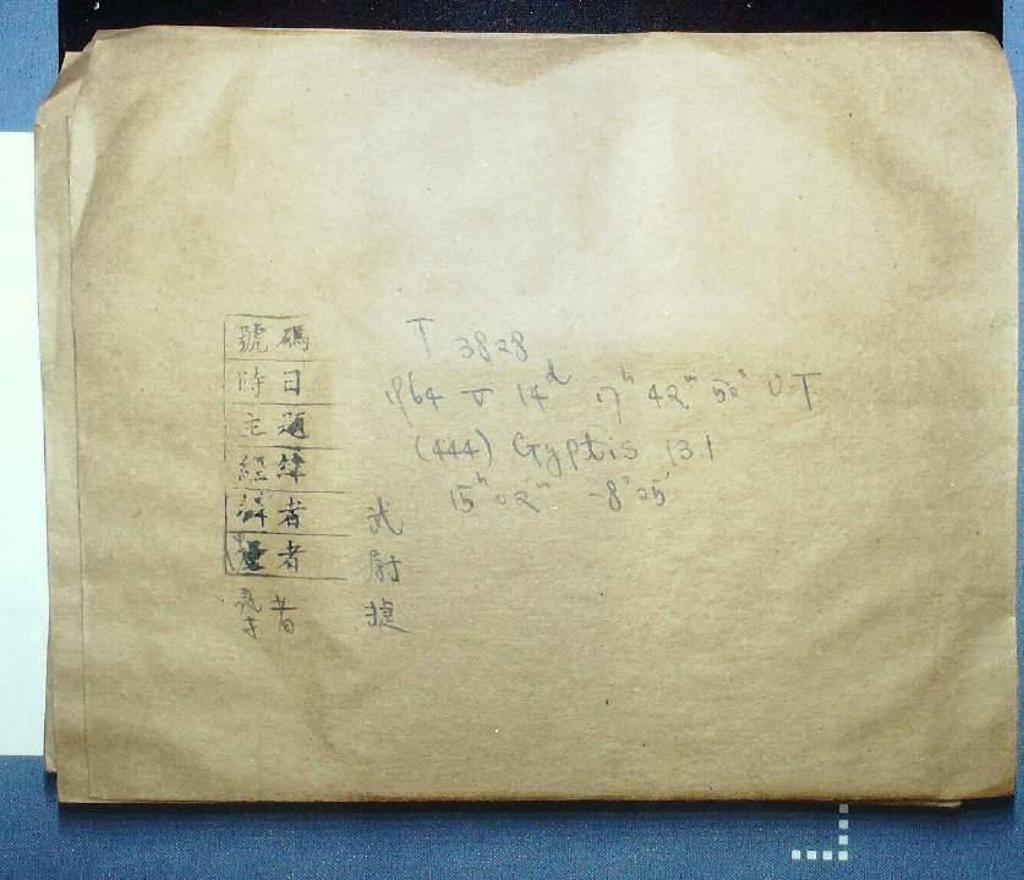 號碼 T 3828
時日 1964 V 14d 17h 42m 50s UT
主題 (444) Gyptis 13.1
經緯 15h 02m -8°25'
者 武
者 尉
者 捷